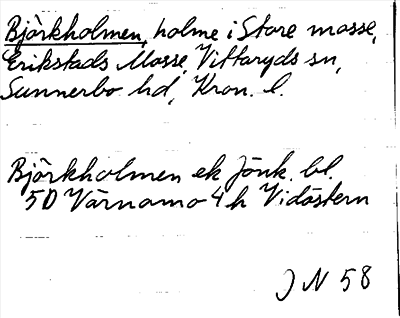 Björkholmen, holme i Store mosse,
Erikstads Mosse, Vittaryds sn,
Sunnerbo hd, Kron. l.
Björkholmen ek Jönk. bl.
5D Värnamo 4h Vidöstern
J N 58